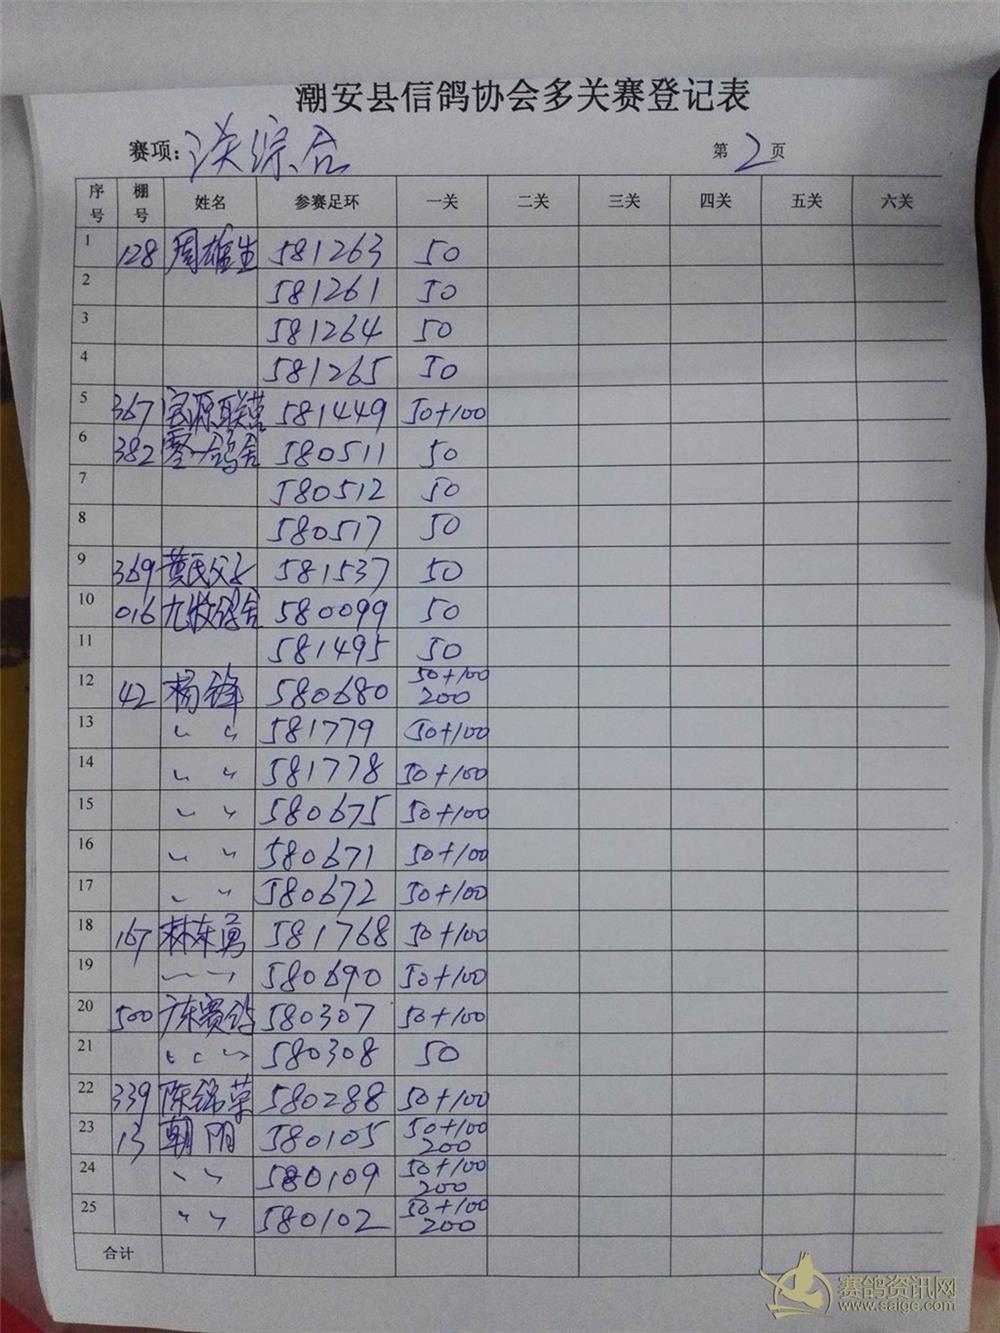 潮安县信鸽协会多关赛登记表
赛项: 综合 第 2 页
序号 棚号 姓名 参赛足环 一关 二关 三关 四关 五关 六关
1 128 周雄生 581263 50
2 581261 50
3 581264 50
4 581265 50
5 367 宝源联营 581449 50+100
6 382 一鸽舍 580511 50
7 580512 50
8 580517 50
9 369 黄氏父子 581537 50
10 016 九牧鸽舍 580099 50
11 581495 50
12 42 杨锋 580680 50+100 200
13 〃 〃 581779 50+100
14 〃 〃 581778 50+100
15 〃 〃 580675 50+100
16 〃 〃 580671 50+100
17 〃 〃 580672 50+100
18 167 林东勇 581768 50+100
19 〃 〃 580690 50+100
20 500 广东赛鸽 580307 50+100
21 〃 〃 580308 50
22 339 陈锦荣 580288 50+100
23 13 朝阳 580105 50+100 200
24 〃 〃 580109 50+100 200
25 〃 〃 580102 50+100 200
合计
赛鸽资讯网
www.saige.com